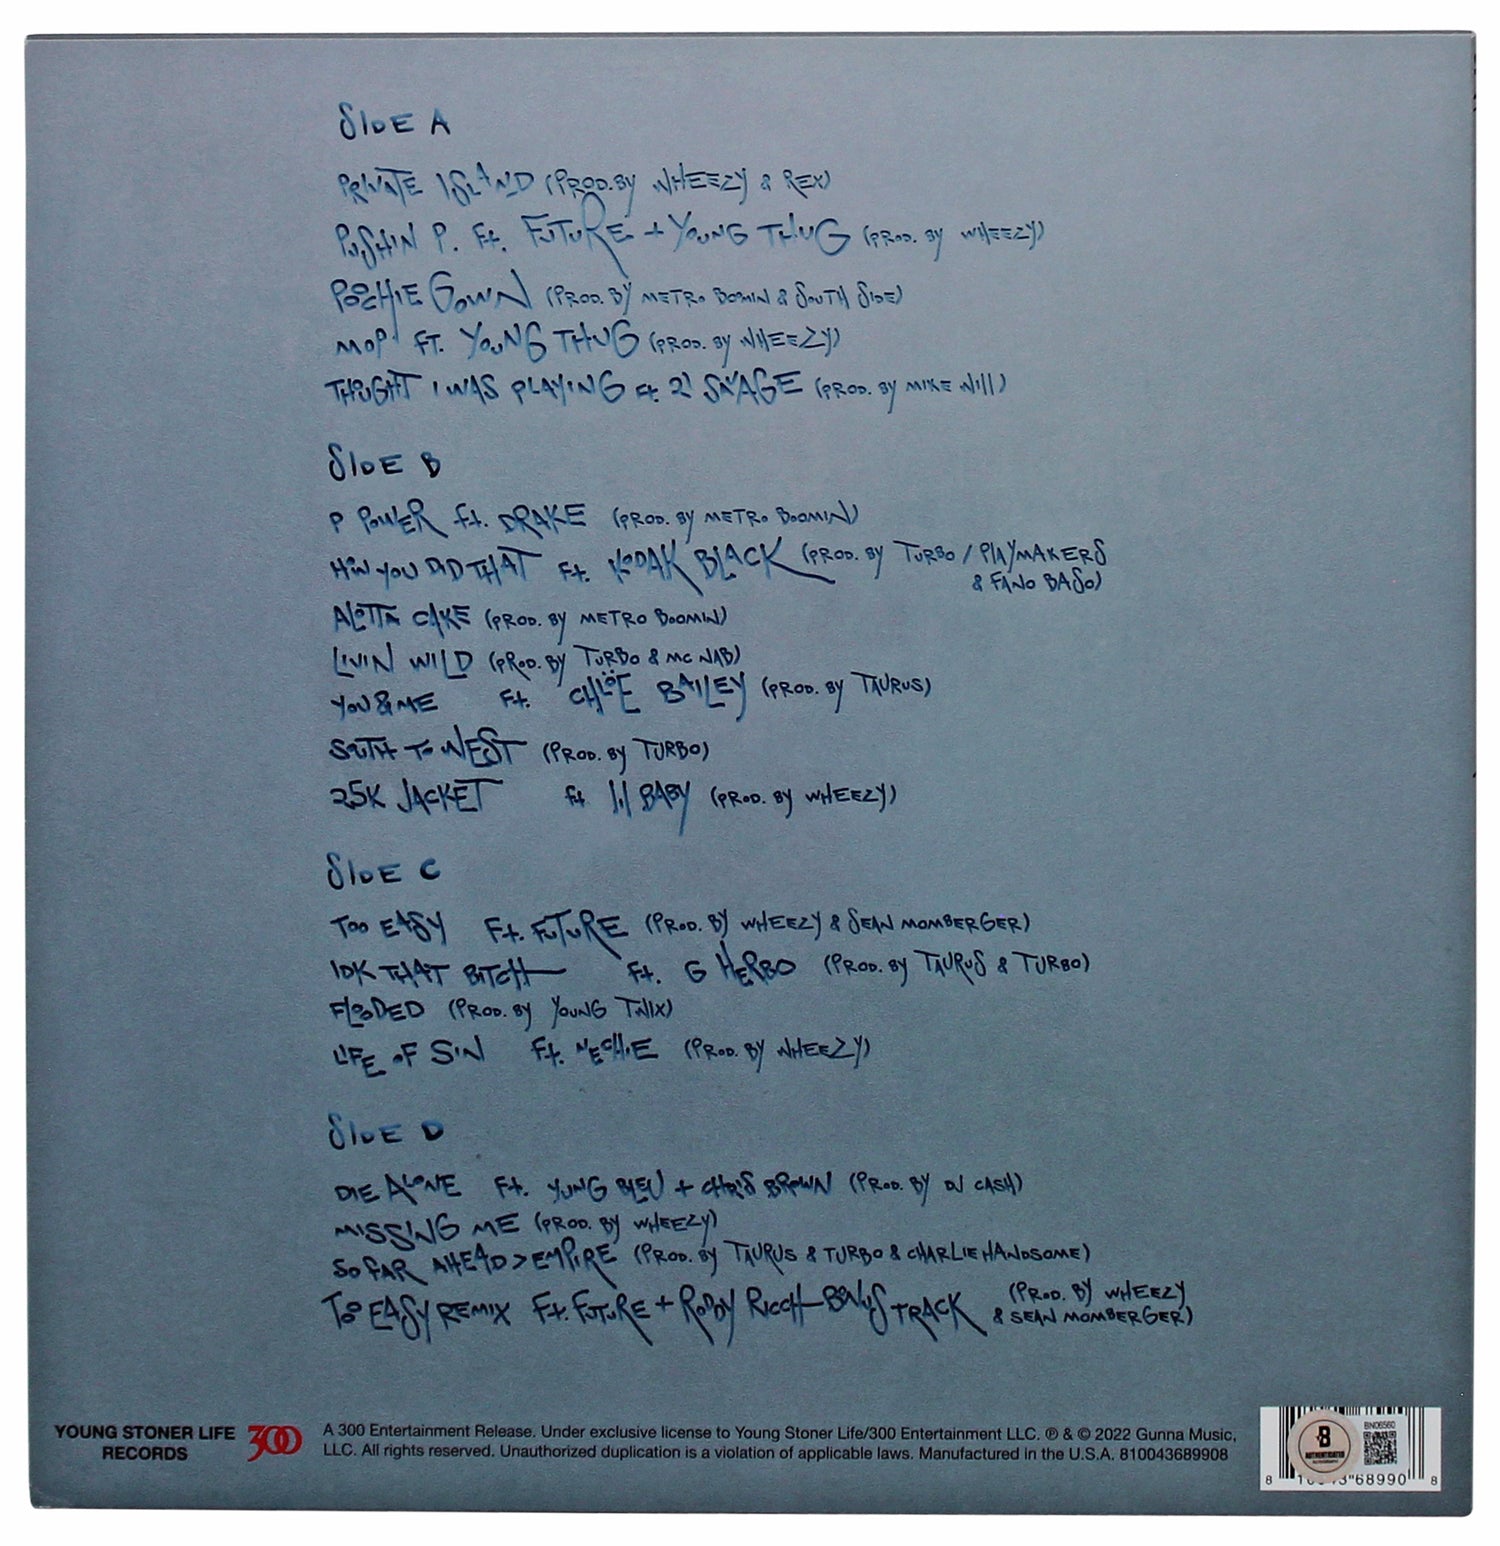 SIDE A
PRIVATE ISLAND (PROD. BY WHEEZY & REX)
PUSHIN P. Ft. FUTURE + YOUNG THUG (PROD. BY WHEEZY)
POOCHIE GOWN (PROD. BY METRO BOMIN & SOUTH SIDE)
MOP FT. YOUNG THUG (PROD. BY WHEEZY)
THOUGHT I WAS PLAYING Ft. 21 SAVAGE (PROD. BY MIKE WIll)
SIDE B
P POWER ft. DRAKE (PROD. BY METRO BOOMIN)
HOW YOU DID THAT Ft. KODAK BLACK (PROD. BY TURBO / PlAYMAKERS
& FANO BASO)
ALOTTA CAKE (PROD. BY METRO BOOMIN)
LIVIN WILD (PROD. BY TURBO & MC NAB)
YOU & ME Ft. CHLÖE BAILEY (PROD. BY TAURUS)
SOUTH TO WEST (PROD. BY TURBO)
25K JACKET ft lil BABY (PROD. BY WHEEZY)
SIDE C
TOO EASY Ft. FUTURE (PROD. BY WHEEZY & SEAN MOMBERGER)
IDK THAT BITCH Ft. G HERBO (PROD. BY TAURUS & TURBO)
FLOODED (PROD. BY YOUNG TWIX)
LIFE OF SIN Ft. NECHIE (PROD. BY WHEEZY)
SIDE D
DIE ALONE Ft. YUNG BLEU + CHRIS BROWN (PROD. BY DJ CASH)
MISSING ME (PROD. BY WHEEZY)
SO FAR AHEAD > EMPIRE (PROD. BY TAURUS & TURBO & CHARLIE HANDSOME)
TOO EASY REMIX Ft. FUTURE + RODDY RICCH - BONUS TRACK (PROD. BY WHEEZY
& SEAN MOMBERGER)
YOUNG STONER LIFE
RECORDS
300
A 300 Entertainment Release. Under exclusive license to Young Stoner Life/300 Entertainment LLC. ℗ & © 2022 Gunna Music,
LLC. All rights reserved. Unauthorized duplication is a violation of applicable laws. Manufactured in the U.S.A. 810043689908
BN06560
B
AUTHENTICATED
8 68990 8